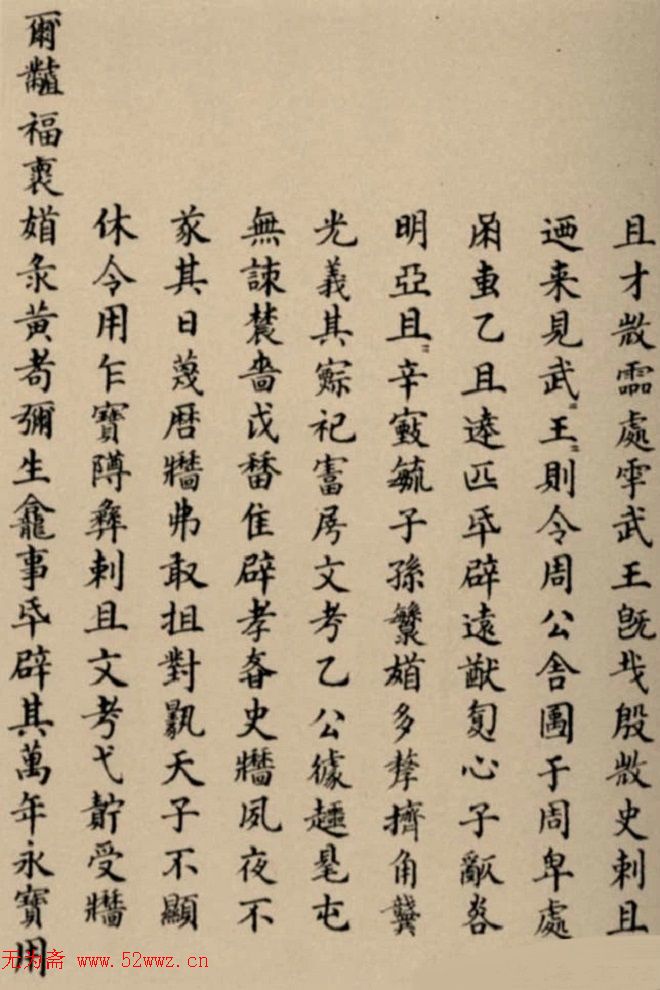 且才散霝處雩武王既殷散史剌且
迺来見武=王=則令周公舍于周卑處
叀乙且逨匹氒辟遠猷匎心子
明亞且=辛毓子孫多孷擠角龏
光義其祀害屖文考乙公趩屯
無諫啬戉隹辟孝史牆夙夜不
㒸其日蔑曆牆弗敢抯對天子不顯
休令用乍寶障彝剌且文考弋貯受牆
爾福褱彔黄耇彌生龕事氒辟其萬年永寶用
无为斋 www.52wwz.cn